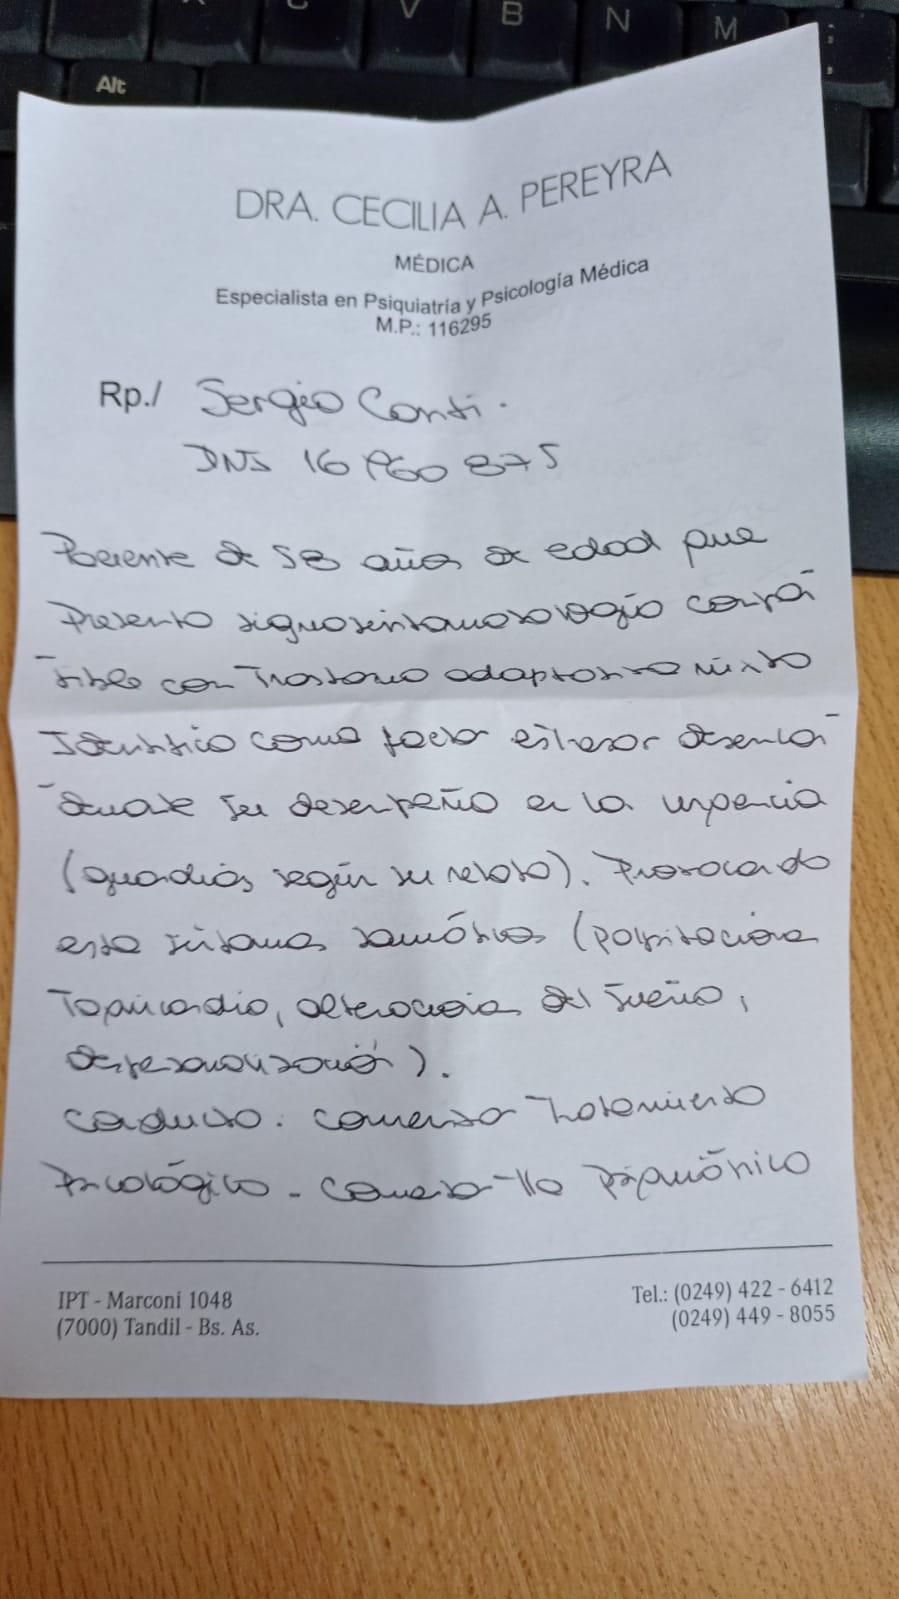 Alt
C V B N M ;
DRA. CECILIA A. PEREYRA
MÉDICA
Especialista en Psiquiatría y Psicología Médica
M.P.: 116295
Rp./ Sergio Conti.
DNI 16 960 875
Paciente de 58 años de edad que
Presenta signosintomatología compa
tible con Trastorno adaptativo mixto
Identifico como factor estresor desenca
denante su desempeño en la urgencia
(guardias según su relato). Provocando
este síntomas somáticos (palpitaciones
Taquicardia, alteraciones del sueño,
despersonalización).
Conducta. Comenzó Tratamiento
Psicológico -
IPT - Marconi 1048
(7000) Tandil - Bs. As.
Tel.: (0249) 422 - 6412
(0249) 449 - 8055